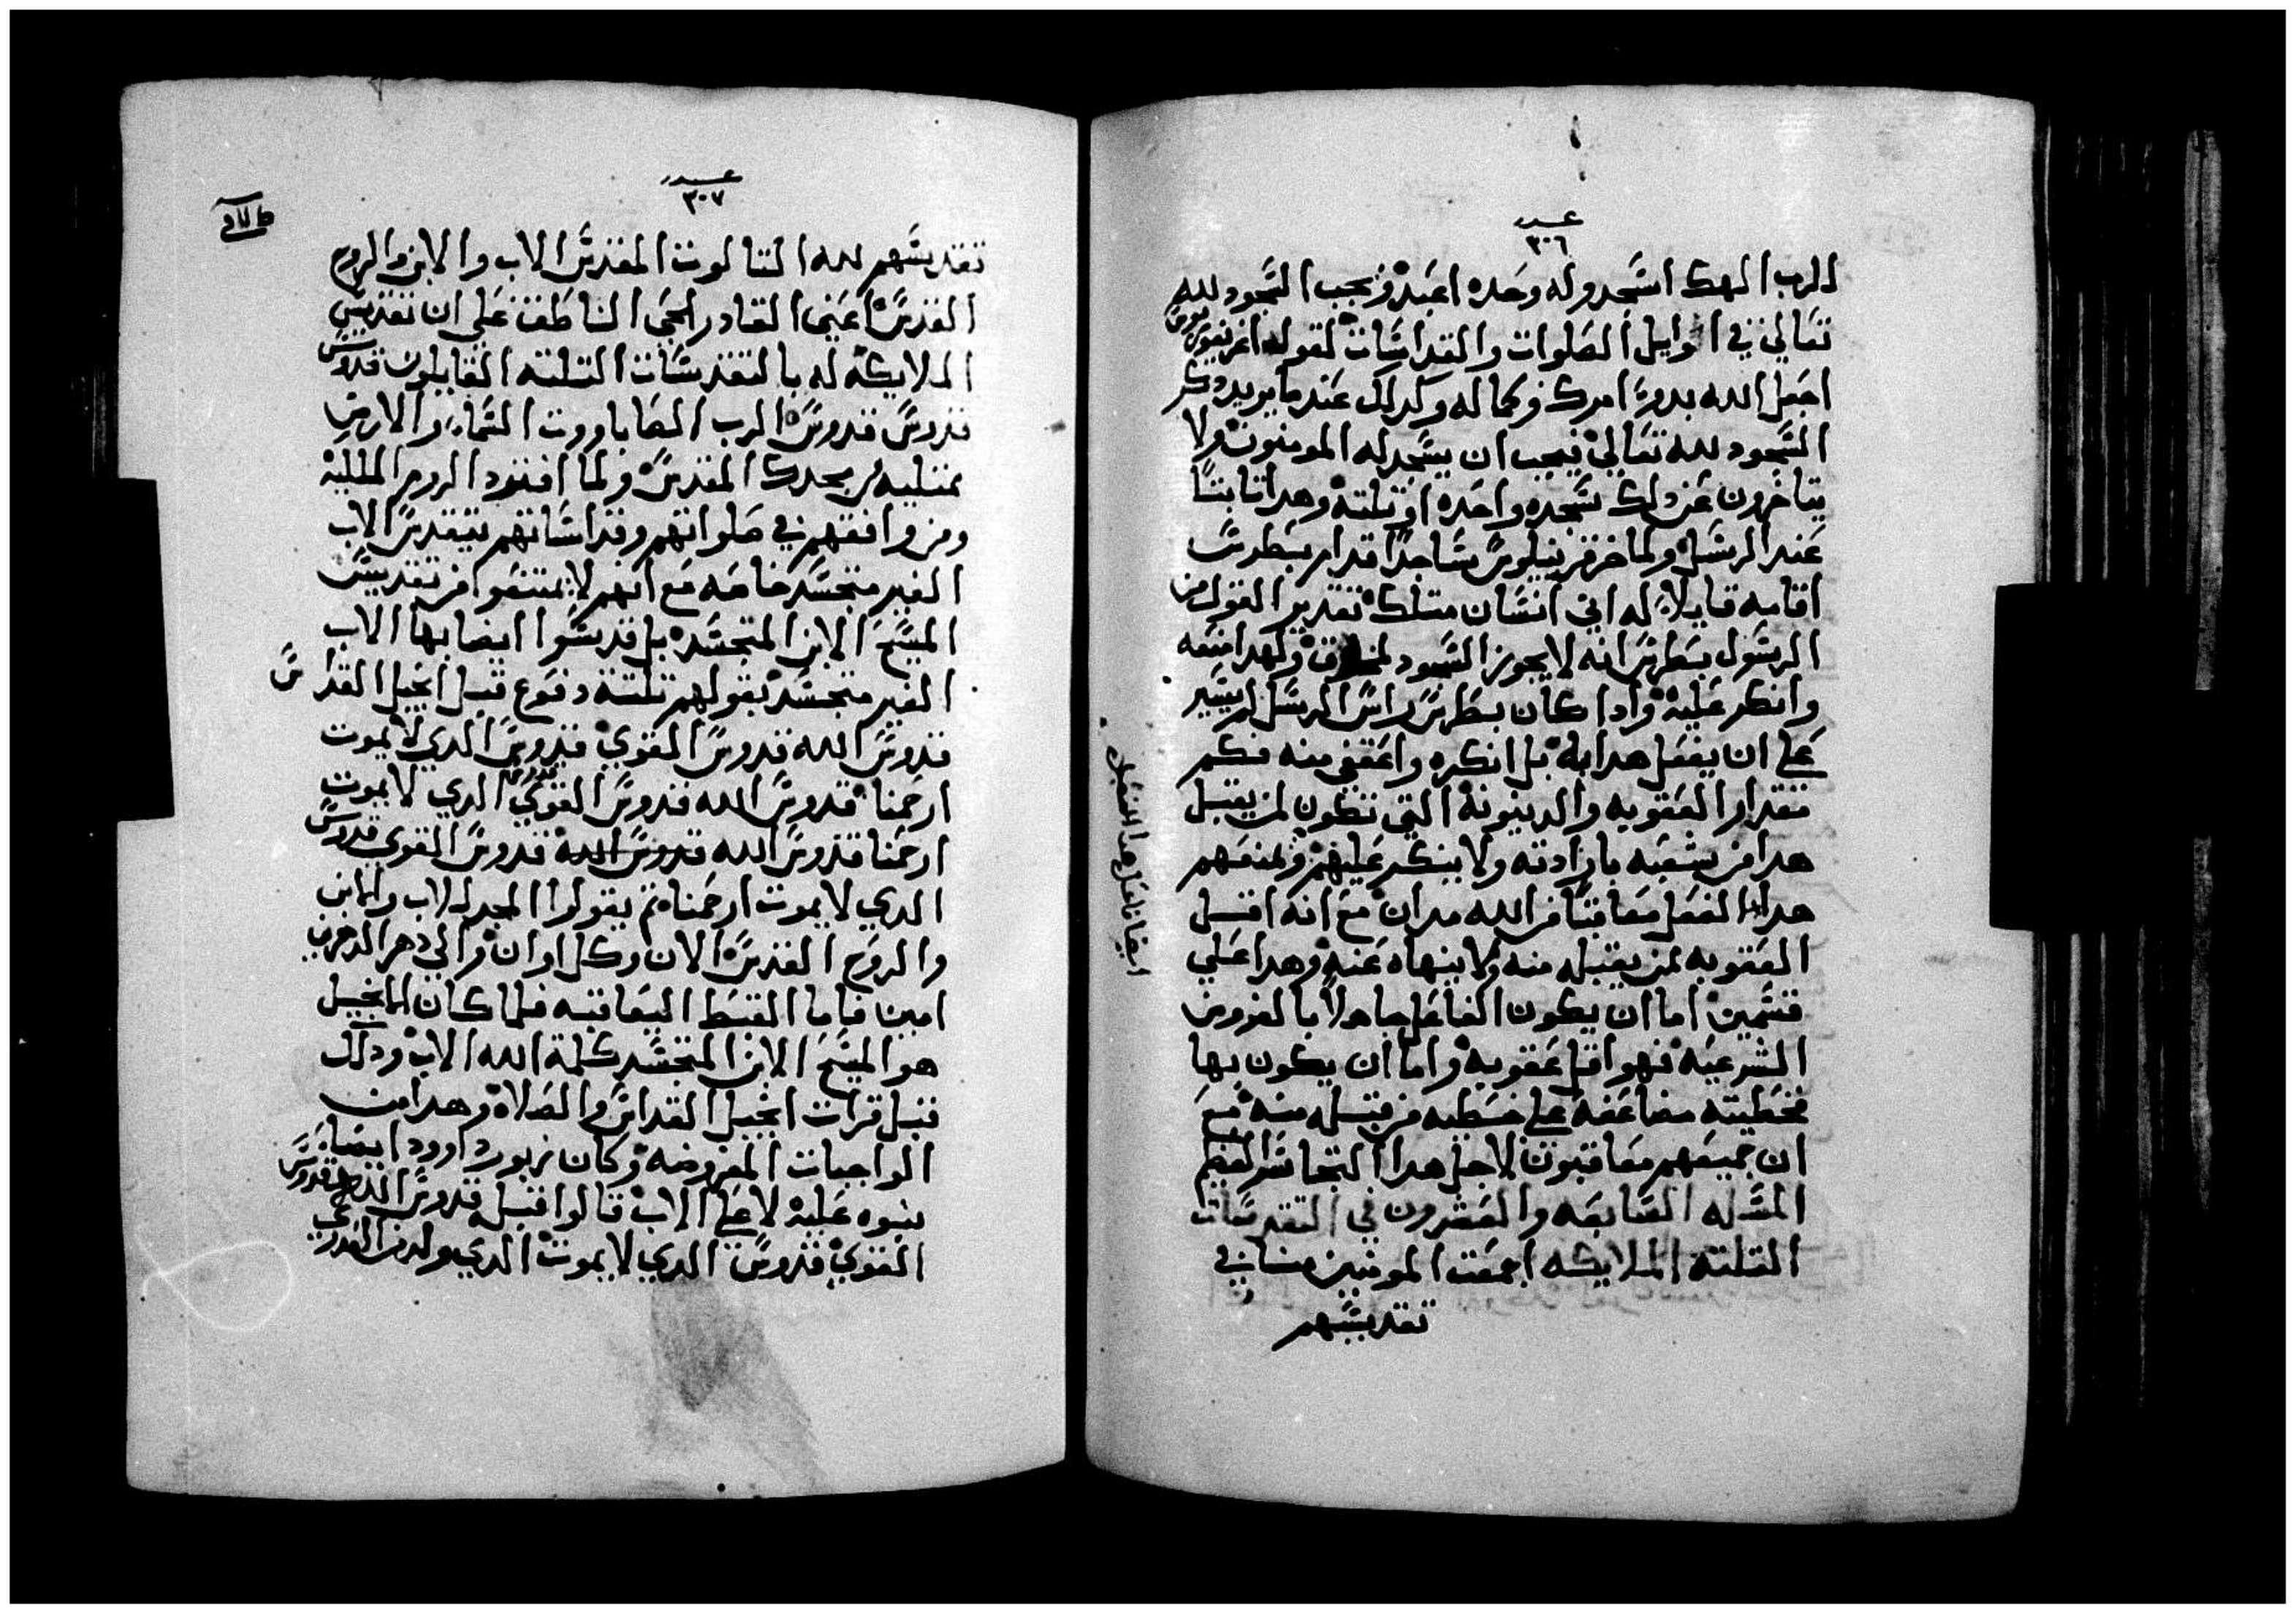 عدد
٣٠٦
الرب الهك اسجد وله وحده اعبد فيجب السجود لله
تعالي في اوايل الصلوات والقداسات لقول اغريغوريوس
اجعل الله بدو امرك وكماله وكدلك عندما يريد دكر
السجود لله تعالي فيجب ان يسجد له المومنون ولا
يتاخرون عن دلك سجده واحده او تلته وهدا تابتا
عند الرسل ولما خر قرنيليوس ساجدا قدام بطرس
اقامه قايلا له اني انسان متلك تقدير القول من
الرسول بطرس انه لا يجوز السجود لمخلوق ولهدا منعه
وانكر عليه وادا كان بطرس راس الرسل لم يسير
علي ان يفعل هدا به بل انكره واعتفي منه فكم
مقدار العقوبه والدينونه التي تكون لمن يقبل
هدا من شعبه بارادته ولا ينكر عليهم ولمنعهم
هدا الفعل معاقبا من الله مدان مع انه اقبل
العقوبه لمن يقبله منه ولا ينهاه عنه وهدا علي
قسمين اما ان يكون الفاعل جاهلا بالفروض
الشرعيه فهو اقل عقوبه واما ان يكون بها
فخطيته مضاعفه علي خطيه من قبله منه مع
ان جميعهم معاقبون لاجل هدا التجاسر العظيم
المسله السابعه والعشرون في التقديسات
التلته الملايكه اجمعت المومنين منا في
تقديسهم
ايضا فاعل هدا الفعل
عدد
٣٠٧
تقديسهم لله التالوت المقدس الاب والابن والروح
القدس اعني القادر الحي الناطق علي ان تقديس
الملايكه له بالتقديسات التلته القايلون قدوس
قدوس قدوس الرب الصاباووت السماء والارض
ممتليه من مجدك المقدس ولما افترد الروم الملكيه
ومن وافقهم في صلواتهم وقداساتهم بتقديس الاب
الغير متجسد خاصه مع انهم لا يمتنعوا من تقديس
المسيح الابن المتجسد بل قدسوا ايضا بها الاب
الغير متجسد بقولهم تلتة دفوع قبل انجيل القداس
قدوس الله قدوس القوي قدوس الدي لا يموت
ارحمنا قدوس الله قدوس القوي قدوس الدي لا يموت
ارحمنا قدوس الله قدوس الله قدوس القوي قدوس
الدي لا يموت ارحمنا تم يقولوا المجد للاب والابن
والروح القدس الان وكل اوان والي دهر الداهرين
امين فاما القبط اليعاقبه فلما كان الانجيل
هو المسيح الابن المتجسد كلمة الله الاب ودلك
قبل قرات انجيل القداس والصلاة وهدا من
الواجبات المفروضه وكان زبور داوود ايضا
ينبوه عليه لا علي الاب قالوا قبله قدوس الله قدوس
القوي قدوس الدي لا يموت الدي ولد من العدري